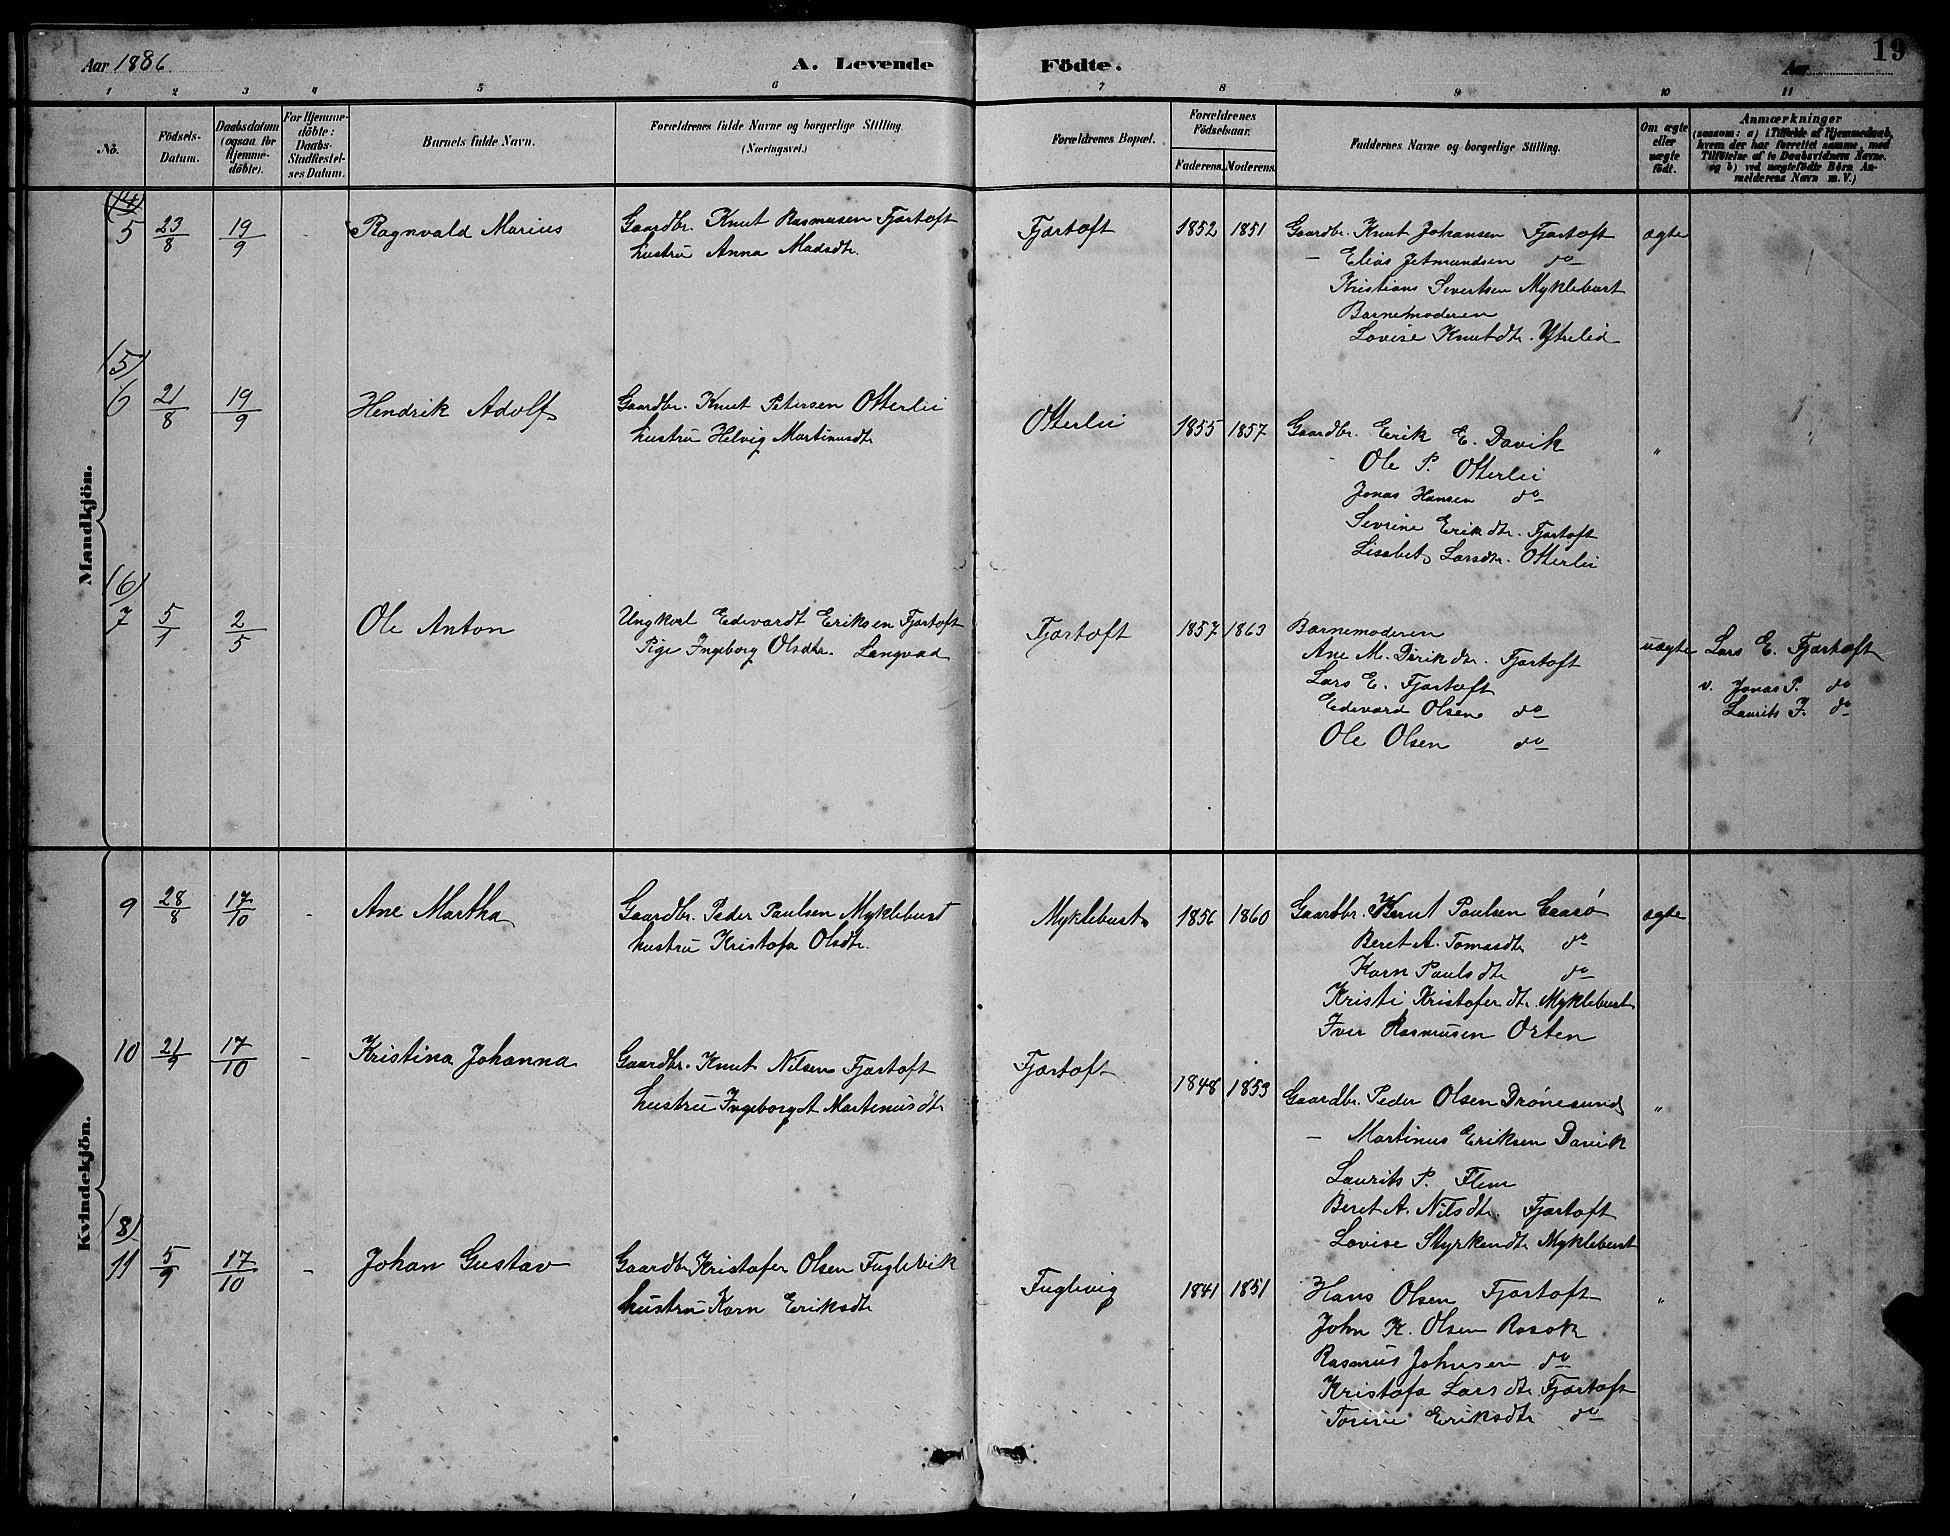 Aar 1886
A. Levende Födte.
Aar
19
1 2 3 4 5 6 7 8 9 10 11
No.
Födsels-Datum.
Daabsdatum (ogsaa for Hjemme-döbte).
For Hjemme-döbte: Daabs-Stadfæstel-ses Datum.
Barnets fulde Navn.
Forældrenes fulde Navne og borgerlige Stilling. (Næringsvei.)
Forældrenes Bopæl.
Forældrenes Födselsaar.
Faderens. Moderens.
Faddernes Navne og borgerlige Stilling.
Om ægte eller uægte födt.
Anmærkninger
(saasom: a) i Tilfælde af Hjemmedaab,
hvem der har forrettet samme, med
Tilföielse af to Daabsvidners Navne,
og b) ved uægtefödte Börn An-
melderens Navn m. V.)
Mandkjön.
(4)
5 23/8 19/9 Ragnvald Marius
Gaardbr. Knut Rasmusen Fjørtoft
hustru Anna Madsdtr.
Fjørtoft 1852 1851
Gaardbr. Knut Johansen Fjørtoft
– Elias Jetmundsen do
Kristians Sivertsen Myklebust
Barnemoderen
Lovise Knutdtr. Ytrelid
ægte
(5)
6 21/8 19/9 Hendrik Adolf
Gaardbr. Knut Petersen Otterlei
hustru Helvig Martinusdtr
Otterlei 1855 1857
Gaardbr. Erik E. Davik
Ole P. Otterlei
Jonas Hansen do
Sevrine Erikdtr. Fjørtoft
Lisabet Larsdtr. Otterlei
"
(6)
7 5/1 2/5 Ole Anton
Ungkarl Edevardt Eriksen Fjørtoft
Pige Ingeborg Olsdtr. Langvad
Fjørtoft 1857 1863
Barnemoderen
Ane M. Dirikdtr. Fjørtoft
Lars E. Fjørtoft
Edevard Olsen do
Ole Olsen do
uægte
Lars E. Fjørtoft
v. Jonas P. do
Laurits J. do
Kvindekjön.
9 28/8 17/10 - Ane Martha
Gaardbr. Peder Paulsen Myklebust
hustru Kristofa Olsdtr.
Myklebust 1856 1860
Gaardbr. Knut Paulsen
Beret A. Tomasdtr do
Karn Paulsdtr do
Kristi Kristoferdtr. Myklebust
Iver Rasmusen Orten
ægte
10 21/9 17/10 - Kristina Johanna
Gaardbr. Knut Nilsen Fjørtoft
hustru Ingeborg A Martinusdtr
Fjørtoft 1848 1853
Gaardbr. Peder Olsen Drønesund
– Martinus Eriksen Davik
Laurits P. Flem
Beret A. Nilsdtr. Fjørtoft
Lovise Styrkendtr Myklebust
"
(8)
11 5/9 17/10 - Johan Gustav
Gaardbr Kristofer Olsen Fuglevik
hustru Karn Eriksdtr
Fuglevig 1841 1851
Hans Olsen Fjørtoft
John K. Olsen Rosok
Rasmus Johnsen do
Kristofa Larsdtr. Fjørtoft
Eriksdtr do
"